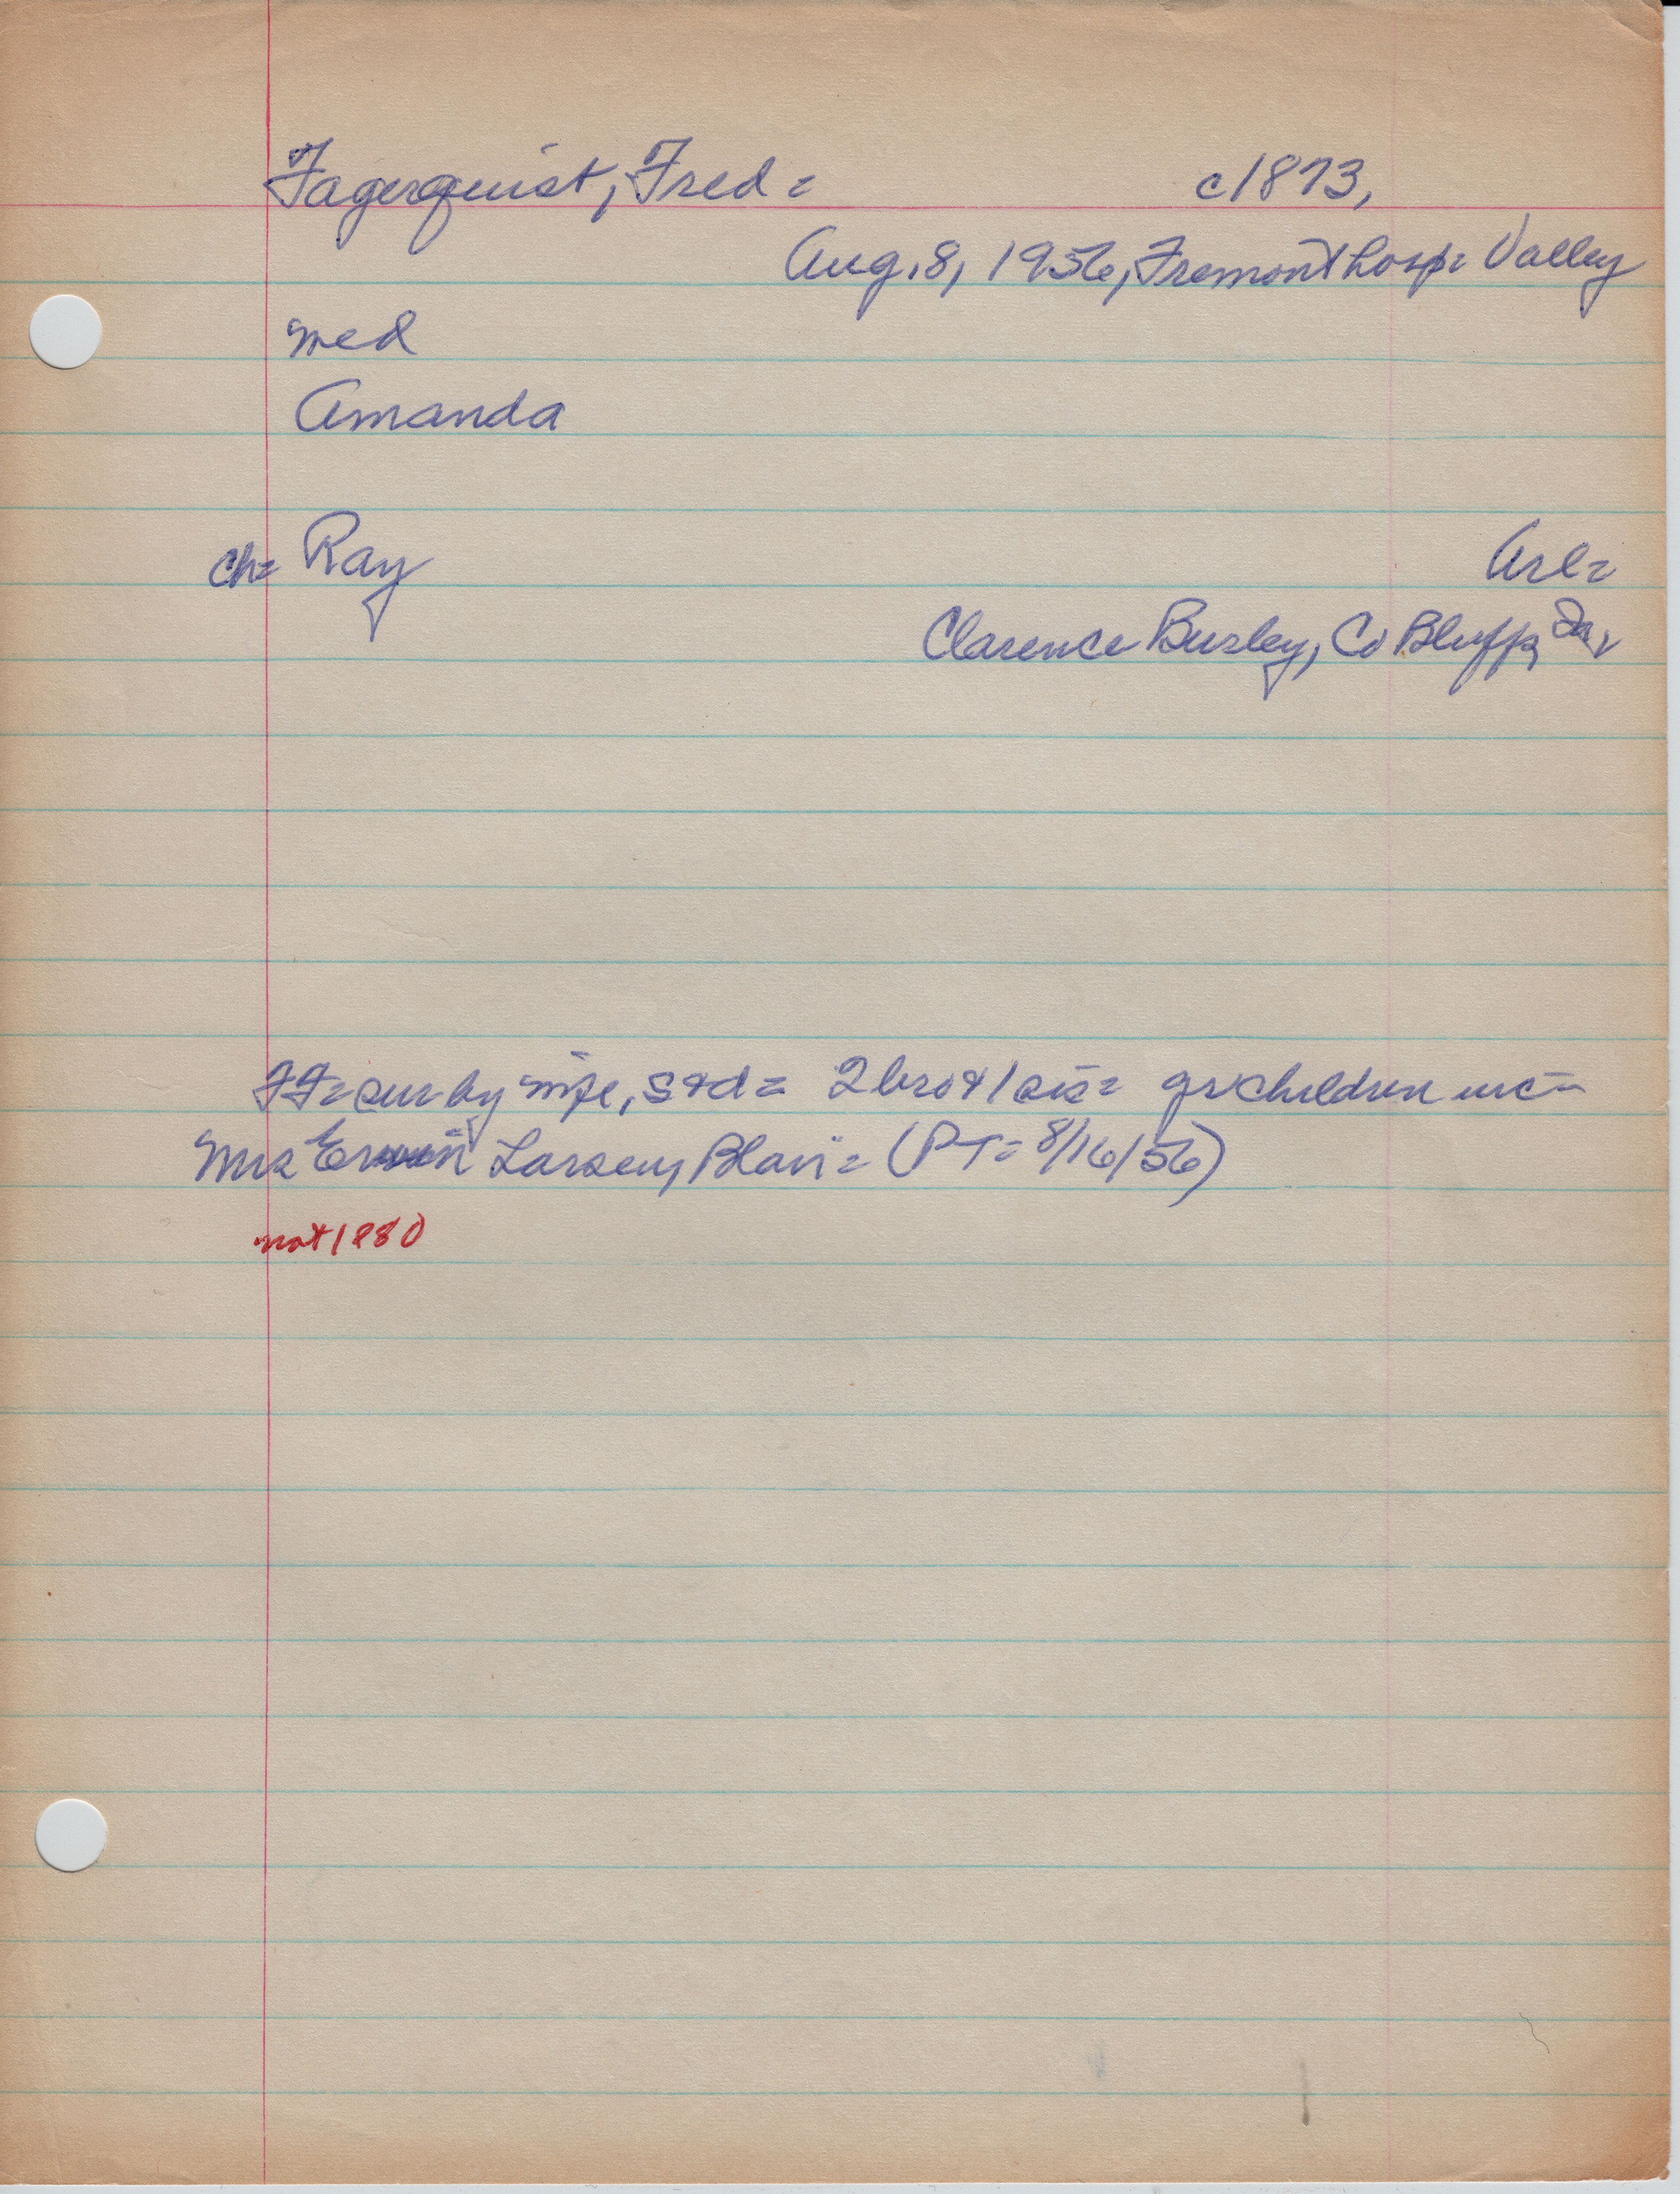 Fagerquist, Fred = c1873,
Aug. 8, 1956, Fremont hosp = Valley
med
Amanda
ch = Ray Arl =
Clarence Busley, Co Bluffs, Ia,
FF = sur by wife, s + d = 2 bro + 1 sis = grchildren inc =
Mrs Erwin Larsen, Blair = (PT = 8/16/56)
not 1880